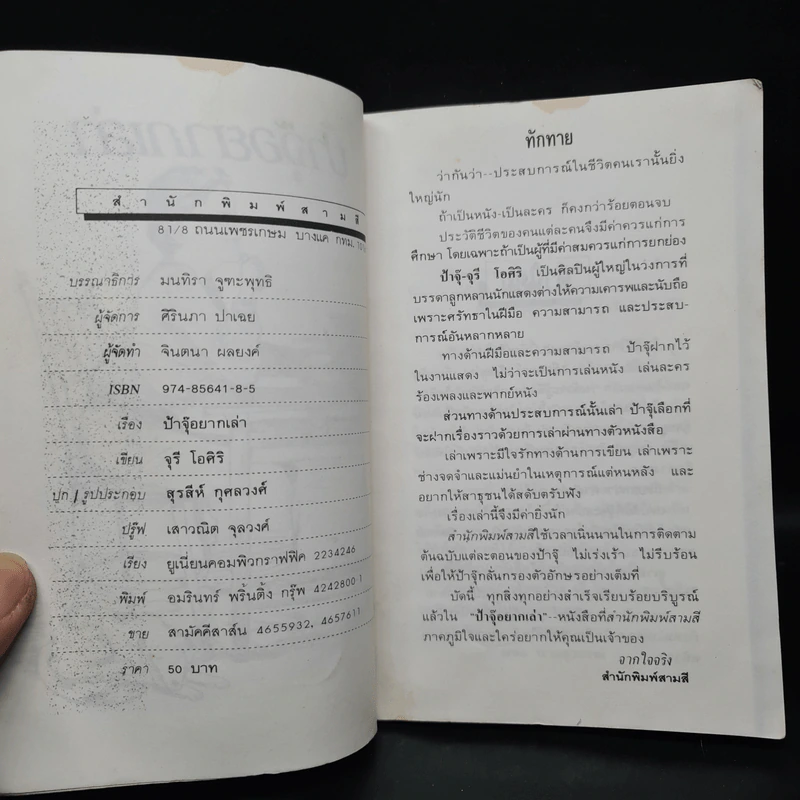 สำนักพิมพ์สามสี
81/8 ถนนเพชรเกษม บางแค กทม.
บรรณาธิการ มนทิรา จูฑะพุทธิ
ผู้จัดการ ศิรินภา ปาเฉย
ผู้จัดทำ จินตนา ผลยงค์
ISBN 974-85641-8-5
เรื่อง ป้าจุ๊อยากเล่า
เขียน จุรี โอศิริ
ปก / รูปประกอบ สุรสีห์ กุศลวงศ์
ปรู๊ฟ เสาวณิต จุลวงศ์
เรียง ยูเนี่ยนคอมพิวกราฟฟิค 2234246
พิมพ์ อมรินทร์ พริ้นติ้ง กรุ๊พ 4242800-1
ขาย สามัคคีสาส์น 4655932, 4657611
ราคา 50 บาท
ทักทาย
ว่ากันว่า--ประสบการณ์ในชีวิตคนเรานั้นยิ่ง
ใหญ่นัก
ถ้าเป็นหนัง-เป็นละคร ก็คงกว่าร้อยตอนจบ
ประวัติชีวิตของคนแต่ละคนจึงมีค่าควรแก่การ
ศึกษา โดยเฉพาะถ้าเป็นผู้ที่มีค่าสมควรแก่การยกย่อง
ป้าจุ๊-จุรี โอศิริ เป็นศิลปินผู้ใหญ่ในวงการที่
บรรดาลูกหลานนักแสดงต่างให้ความเคารพและนับถือ
เพราะศรัทธาในฝีมือ ความสามารถ และประสบ-
การณ์อันหลากหลาย
ทางด้านฝีมือและความสามารถ ป้าจุ๊ฝากไว้
ในงานแสดง ไม่ว่าจะเป็นการเล่นหนัง เล่นละคร
ร้องเพลงและพากย์หนัง
ส่วนทางด้านประสบการณ์นั้นเล่า ป้าจุ๊เลือกที่
จะฝากเรื่องราวด้วยการเล่าผ่านทางตัวหนังสือ
เล่าเพราะมีใจรักทางด้านการเขียน เล่าเพราะ
ช่างจดจำและแม่นยำในเหตุการณ์แต่หนหลัง และ
อยากให้สาธุชนได้สดับตรับฟัง
เรื่องเล่านี้จึงมีค่ายิ่งนัก
สำนักพิมพ์สามสีใช้เวลาเนิ่นนานในการติดตาม
ต้นฉบับแต่ละตอนของป้าจุ๊ ไม่เร่งเร้า ไม่รีบร้อน
เพื่อให้ป้าจุ๊กลั่นกรองตัวอักษรอย่างเต็มที่
บัดนี้ ทุกสิ่งทุกอย่างสำเร็จเรียบร้อยบริบูรณ์
แล้วใน "ป้าจุ๊อยากเล่า"--หนังสือที่สำนักพิมพ์สามสี
ภาคภูมิใจและใคร่อยากให้คุณเป็นเจ้าของ
จากใจจริง
สำนักพิมพ์สามสี